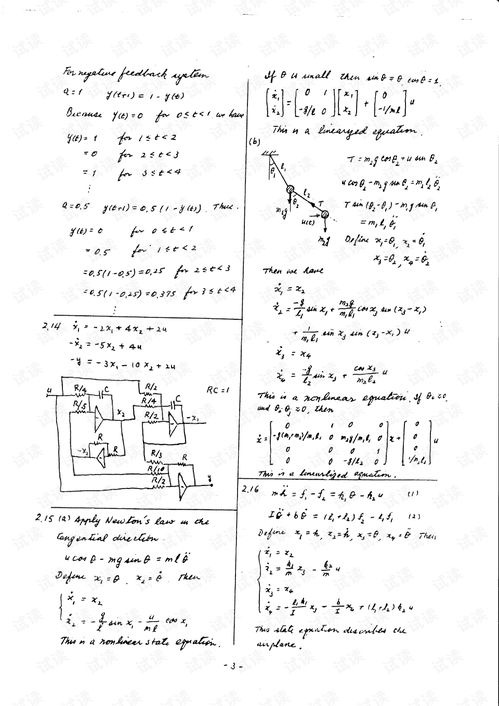 For negative feedback system
a=1 y(t+1) = 1 - y(t)
Because y(t)=0 for 0≤t<1 we have
y(t) = 1 for 1≤t<2
= 0 for 2≤t<3
= 1 for 3≤t<4
⋮
a=0.5 y(t+1) = 0.5(1-y(t)). Thus
y(t) = 0 for 0≤t<1
= 0.5 for 1≤t<2
= 0.5(1-0.5) = 0.25 for 2≤t<3
= 0.5(1-0.25) = 0.375 for 3≤t<4
⋮
2.14 ẋ₁ = -2x₁ + 4x₂ + 2u
-ẋ₂ = -5x₂ + 4u
-y = -3x₁ - 10x₂ + 2u
RC=1
u R/4 C R/2 C
R/5 x₂ R/4 -x₁
R/2
R
-x₂ R
R/3 R
R/10
R/2 y
2.15 (a) Apply Newton's law in the
tangential direction
u cos θ - mg sin θ = mlθ̈
Define x₁ = θ, x₂ = θ̇ Then
ẋ₁ = x₂
ẋ₂ = -g/l sin x₁ - u/ml cos x₁
This is a nonlinear state equation.
If θ is small then sin θ = θ cos θ = 1.
[ẋ₁ ẋ₂] = [0 1 -g/l 0] [x₁ x₂] + [0 -1/ml] u
This is a linearized equation.
(b)
θ₁ l₁
l₂
θ₂ T
m₁g u(t)
m₂g
T = m₂g cos θ₂ + u sin θ₂
u cos θ₂ - m₂g sin θ₂ = m₂l₂θ̈₂
T sin(θ₂-θ₁) - m₁g sin θ₁
= m₁l₁θ̈₁
Define x₁=θ₁, x₂=θ̇₁
x₃=θ₂, x₄=θ̇₂
Then we have
ẋ₁ = x₂
ẋ₂ = -g/l₁ sin x₁ + m₂g/m₁l₁ cos x₃ sin(x₃-x₁)
+ 1/m₁l₁ sin x₃ sin(x₃-x₁) u
ẋ₃ = x₄
ẋ₄ = -g/l₂ sin x₃ + cos x₃/m₂l₂ u
This is a nonlinear equation. If θᵢ≈0
and θᵢθⱼ=0, then
ẋ = [0 1 0 0
-g(m₁+m₂)/m₁l₁ 0 m₂g/m₁l₁ 0
0 0 0 1
0 0 -g/l₂ 0] x + [0 0 0 1/m₂l₂] u
This is a linearized equation.
2.16 mḧ = f₁ - f₂ = k₁θ - k₂u (1)
Iθ̈ + bθ̇ = (l₁+l₂)f₂ - l₁f₁ (2)
Define x₁=h, x₂=ḣ, x₃=θ, x₄=θ̇ Then
ẋ₁ = x₂
ẋ₂ = k₁/m x₃ - k₂/m u
ẋ₃ = x₄
This state equation describes the
airplane.
- 3 -